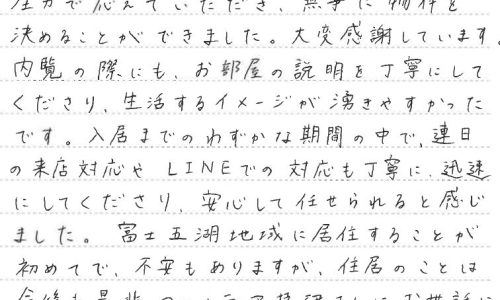 圧力で応えていただき、無事に物件を
決めることができました。大変感謝しています。
内覧の際にも、お部屋の説明を丁寧にして
くださり、生活するイメージが湧きやすかった
です。入居までのわずかな期間の中で、連日
の来店対応や LINEでの対応も丁寧に、迅速
にしてくださり、安心して任せられると感じ
ました。富士五湖地域に居住することが
初めてで、不安もありますが、住居のことは
今後も是非